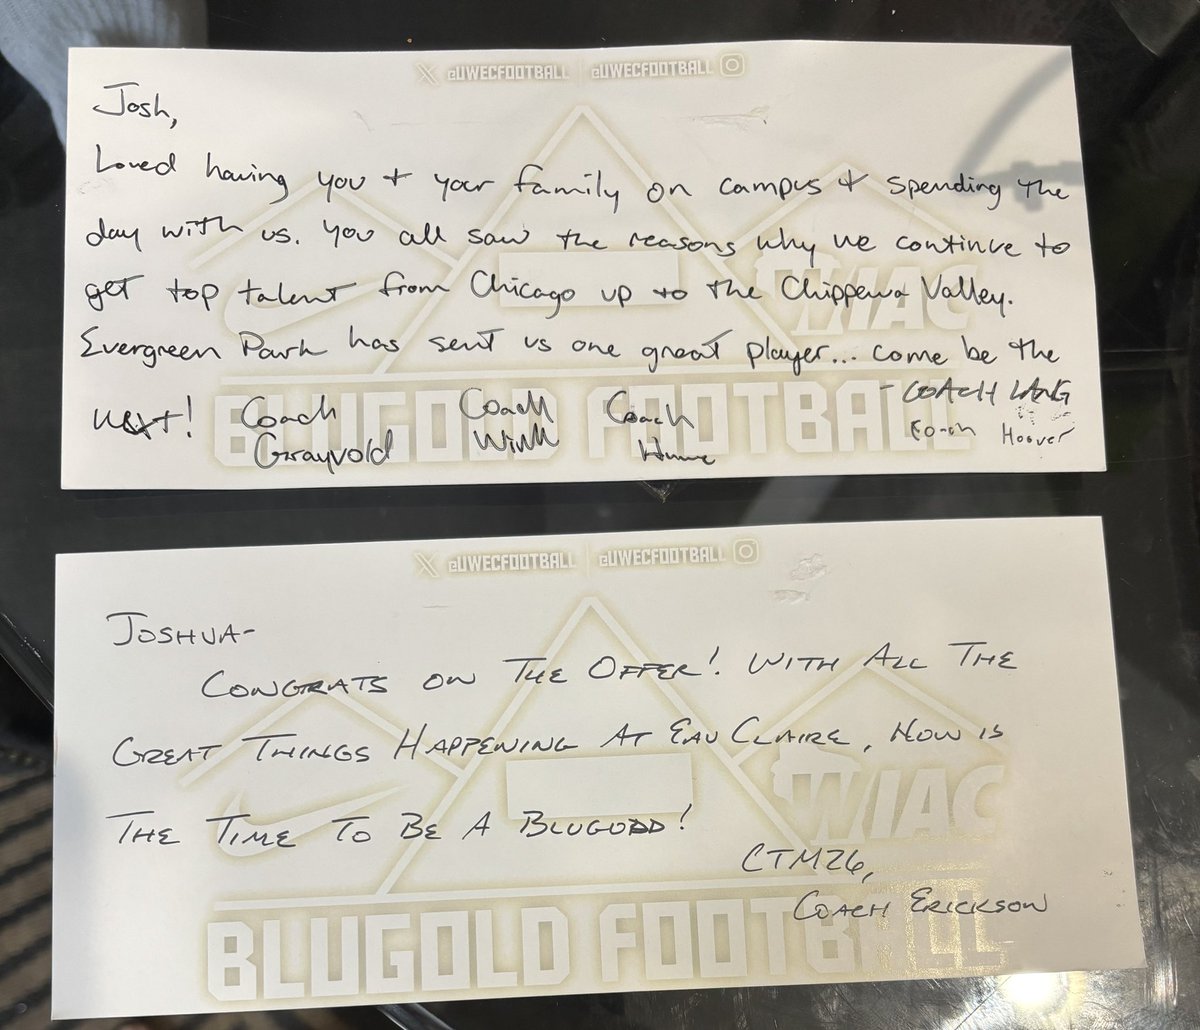 @UWECFOOTBALL | @UWECFOOTBALL
Josh,
Loved having you + your family on campus + spending the
day with us. You all saw the reasons why we continue to
get top talent from Chicago up to the Chippewa Valley.
Evergreen Park has sent us one great player... come be the
next! Coach Grayvold Coach Coach - COACH LANG
Coach Hoover
WIAC
BLUGOLD FOOTBALL
@UWECFOOTBALL | @UWECFOOTBALL
JOSHUA-
CONGRATS ON THE OFFER! WITH ALL THE
GREAT THINGS HAPPENING AT EAU CLAIRE, NOW IS
THE TIME TO BE A BLUGOLD!
CTM26,
COACH ERICKSON
WIAC
BLUGOLD FOOTBALL